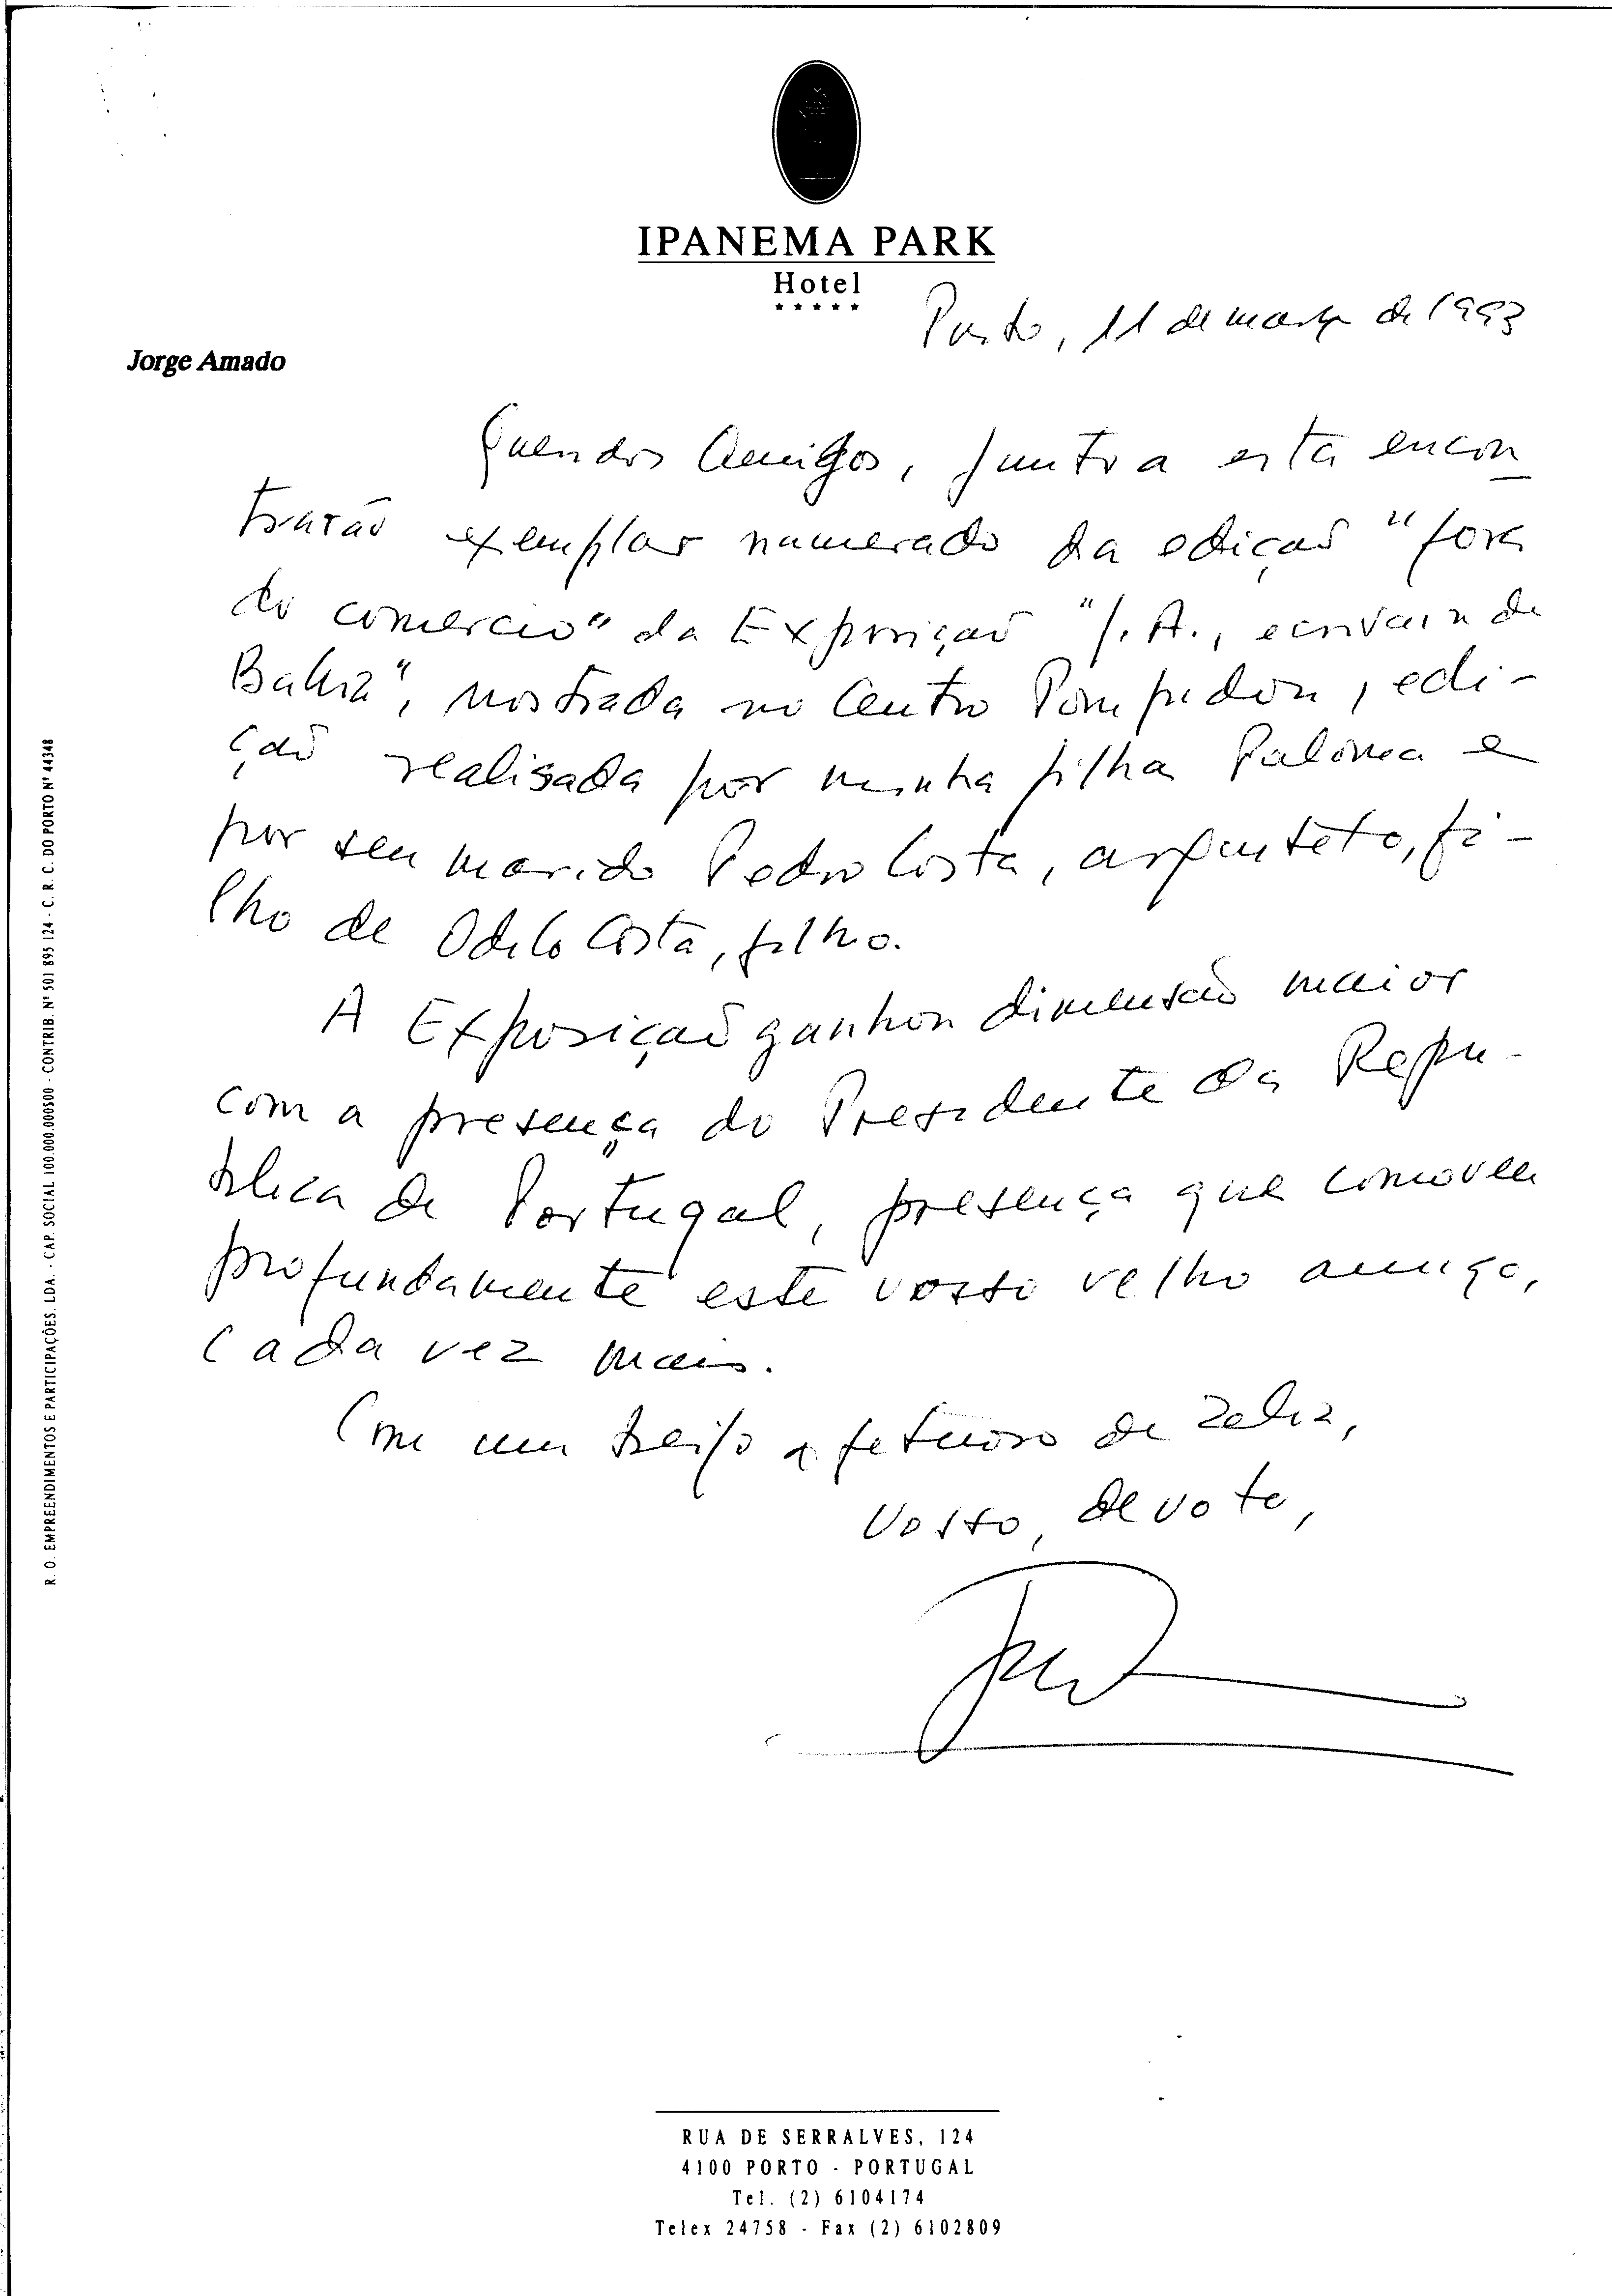 IPANEMA PARK
Hotel
★★★★★
Porto, 11 de março de 1993
Jorge Amado
Queridos Amigos, junto a esta encon
trarão exemplar numerado da edição "fora
do comercio" da Exposição "J. A., ecrivain de
Bahia", mostrada no Centro Pompidou, edi-
ção realisada por minha filha Paloma e
por seu marido Pedro Costa, arquiteto, fi-
lho de Odilo Costa, filho.
A Exposição ganhou dimensão maior
com a presença do Presidente da Repu-
blica de Portugal, presença que comoveu
profundamente este vosso velho amigo,
cada vez mais.
Com um beijo afetuoso de Zelia,
vosso, devoto,
R. O. EMPREENDIMENTOS E PARTICIPAÇÕES, LDA. - CAP. SOCIAL 100.000.000$00 - CONTRIB. Nº 501 895 124 - C. R. C. DO PORTO Nº 44348
RUA DE SERRALVES, 124
4100 PORTO - PORTUGAL
Tel. (2) 6104174
Telex 24758 - Fax (2) 6102809